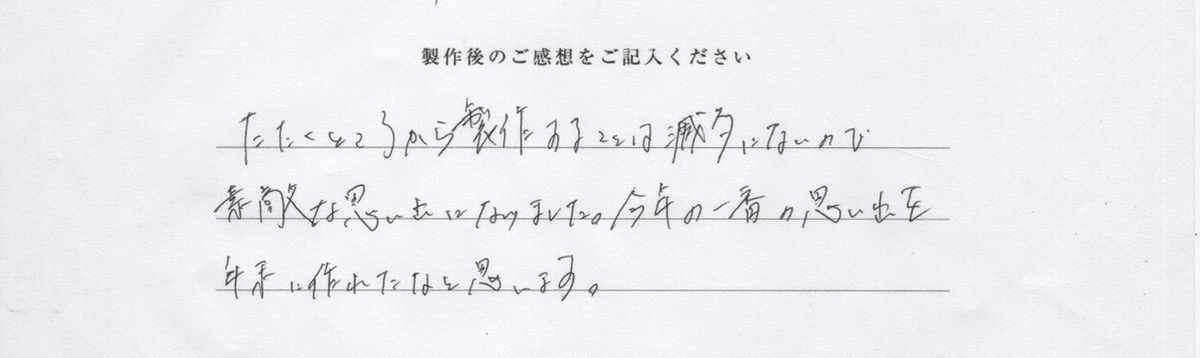 製作後のご感想をご記入ください
たたくところから製作することは滅多にないので
素敵な思い出になりました。今年の一番の思い出を
年末に作れたなと思います。